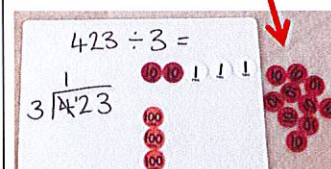 423 ÷ 3 =
1
10 10 1 1 1
3 4 ¹23
100
100
100
10 10 10 10 10 10 10 10 10 10